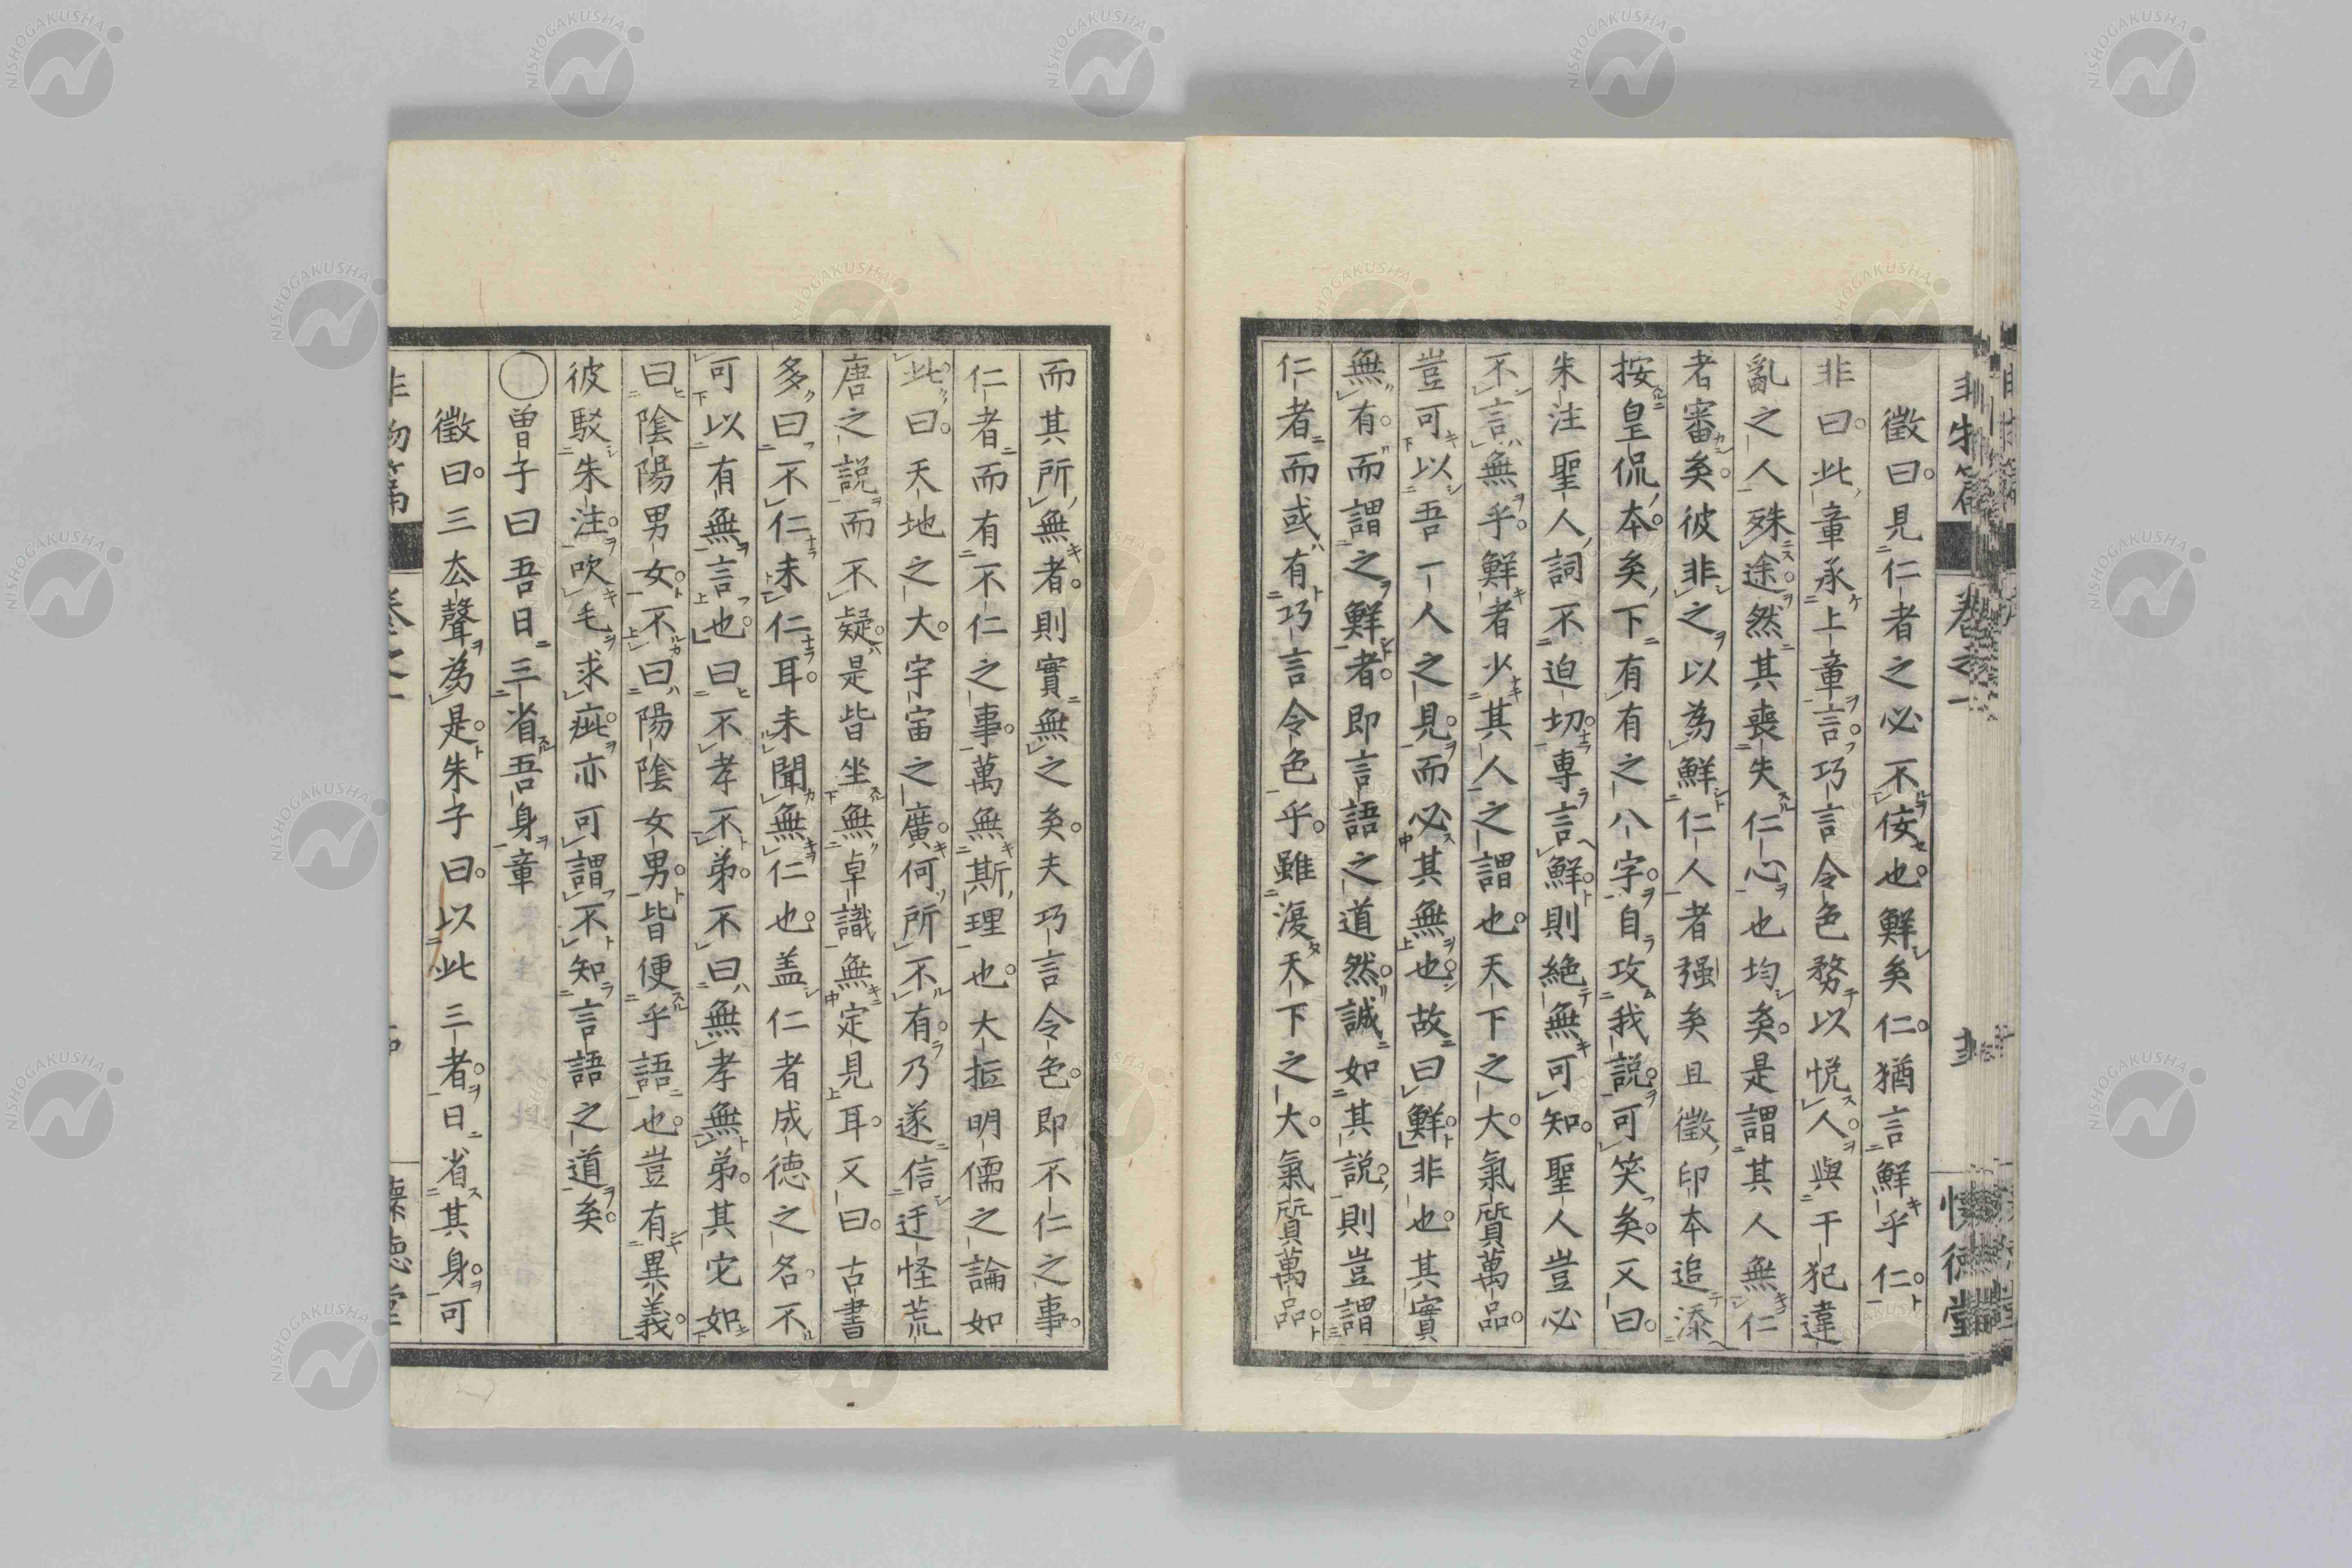 非物篇
卷之一
懷德堂
徵曰。見仁者之必不佞也。鮮矣仁。猶言鮮乎仁。
非曰。此章承上章言。巧言令色務以悦人。與干犯違
亂之人殊途。然其喪失仁心也均矣。是謂其人無仁
者審矣。彼非之以為鮮仁人者强矣且徵印本追添
按皇侃本。矣下有有之八字。自攻我説。可笑矣。又曰。
朱注聖人詞不迫切。專言鮮。則絶無可知。聖人豈必
不言無乎。鮮者少其人之謂也。天下之大。氣質萬品。
豈可以吾一人之見。而必其無也。故曰鮮。非也。其實
無有。而謂之鮮者。即言語之道然。誠如其説。則豈謂
仁者而或有巧言令色乎。雖復天下之大。氣質萬品。
而其所無者。則實無之矣。夫巧言令色。即不仁之事。
仁者而有不仁之事。萬無斯理也。大抵明儒之論如
此。曰。天地之大。宇宙之廣。何所不有。乃遂信迂怪荒
唐之説而不疑。是皆坐無卓識無定見耳。又曰。古書
多曰不仁未仁耳。未聞無仁也。盖仁者成德之名。不
可以有無言也。曰不孝不弟。不曰無孝無弟。其它如
曰陰陽男女。不曰陽陰女男。皆便乎語也。豈有異義。
彼駁朱注。吹毛求疵。亦可謂不知言語之道矣。
○曾子曰吾日三省吾身章
徵曰。三去聲為是。朱子曰。以此三者。日省其身。可
非物篇
卷之一
懷德堂